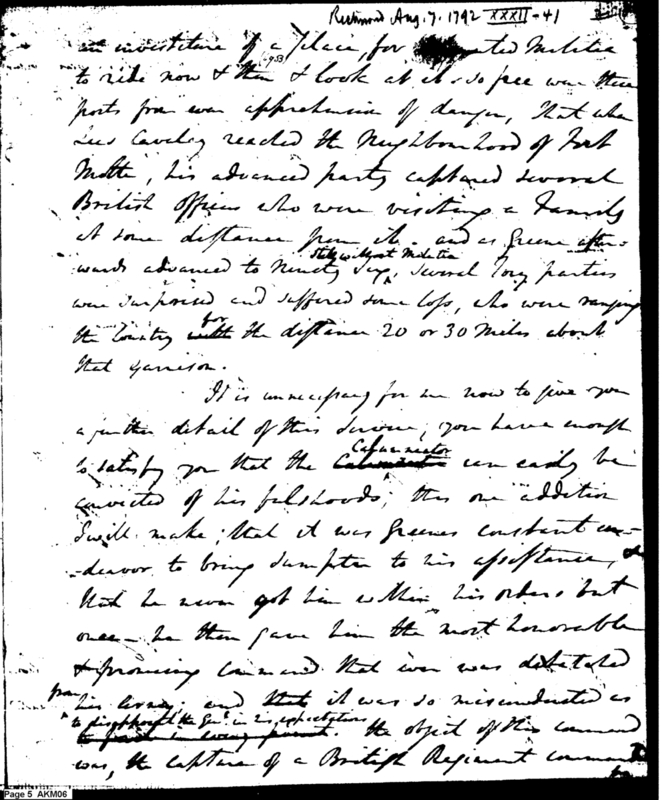 Richmond Aug. 7. 1792 XXXII-41
an investiture of a place, for Militia
to ride now & then & look at it - so free were these
953
posts from even apprehension of danger, that when
Lees Cavalry reached the Neighbourhood of Fort
Motte, his advanced party captured several
British officers who were visiting a Family
at some distance from it - and as Greene after-
wards advanced to Ninety Six, several Tory parties
Militia
were surprised and suffered some loss, who were ranging
the Country for the distance 20 or 30 Miles about
that garrison.
It is unnecessary for me now to give you
a further detail of this ; you have enough
to satisfy you that the Calumniator can easily be
convicted of his falshoods; this one addition
I will make; that it was Greenes constant en-
-deavor to bring Sumpter to his assistance, &
that he never got him within his orders but
once - he then gave him the most honorable
& promising command that ever was detatched
from his army; and it was so misconducted as
to disappoint the Genl in his expectations. the object of this command
was, the capture of a British Regiment
Page 5 AKM06